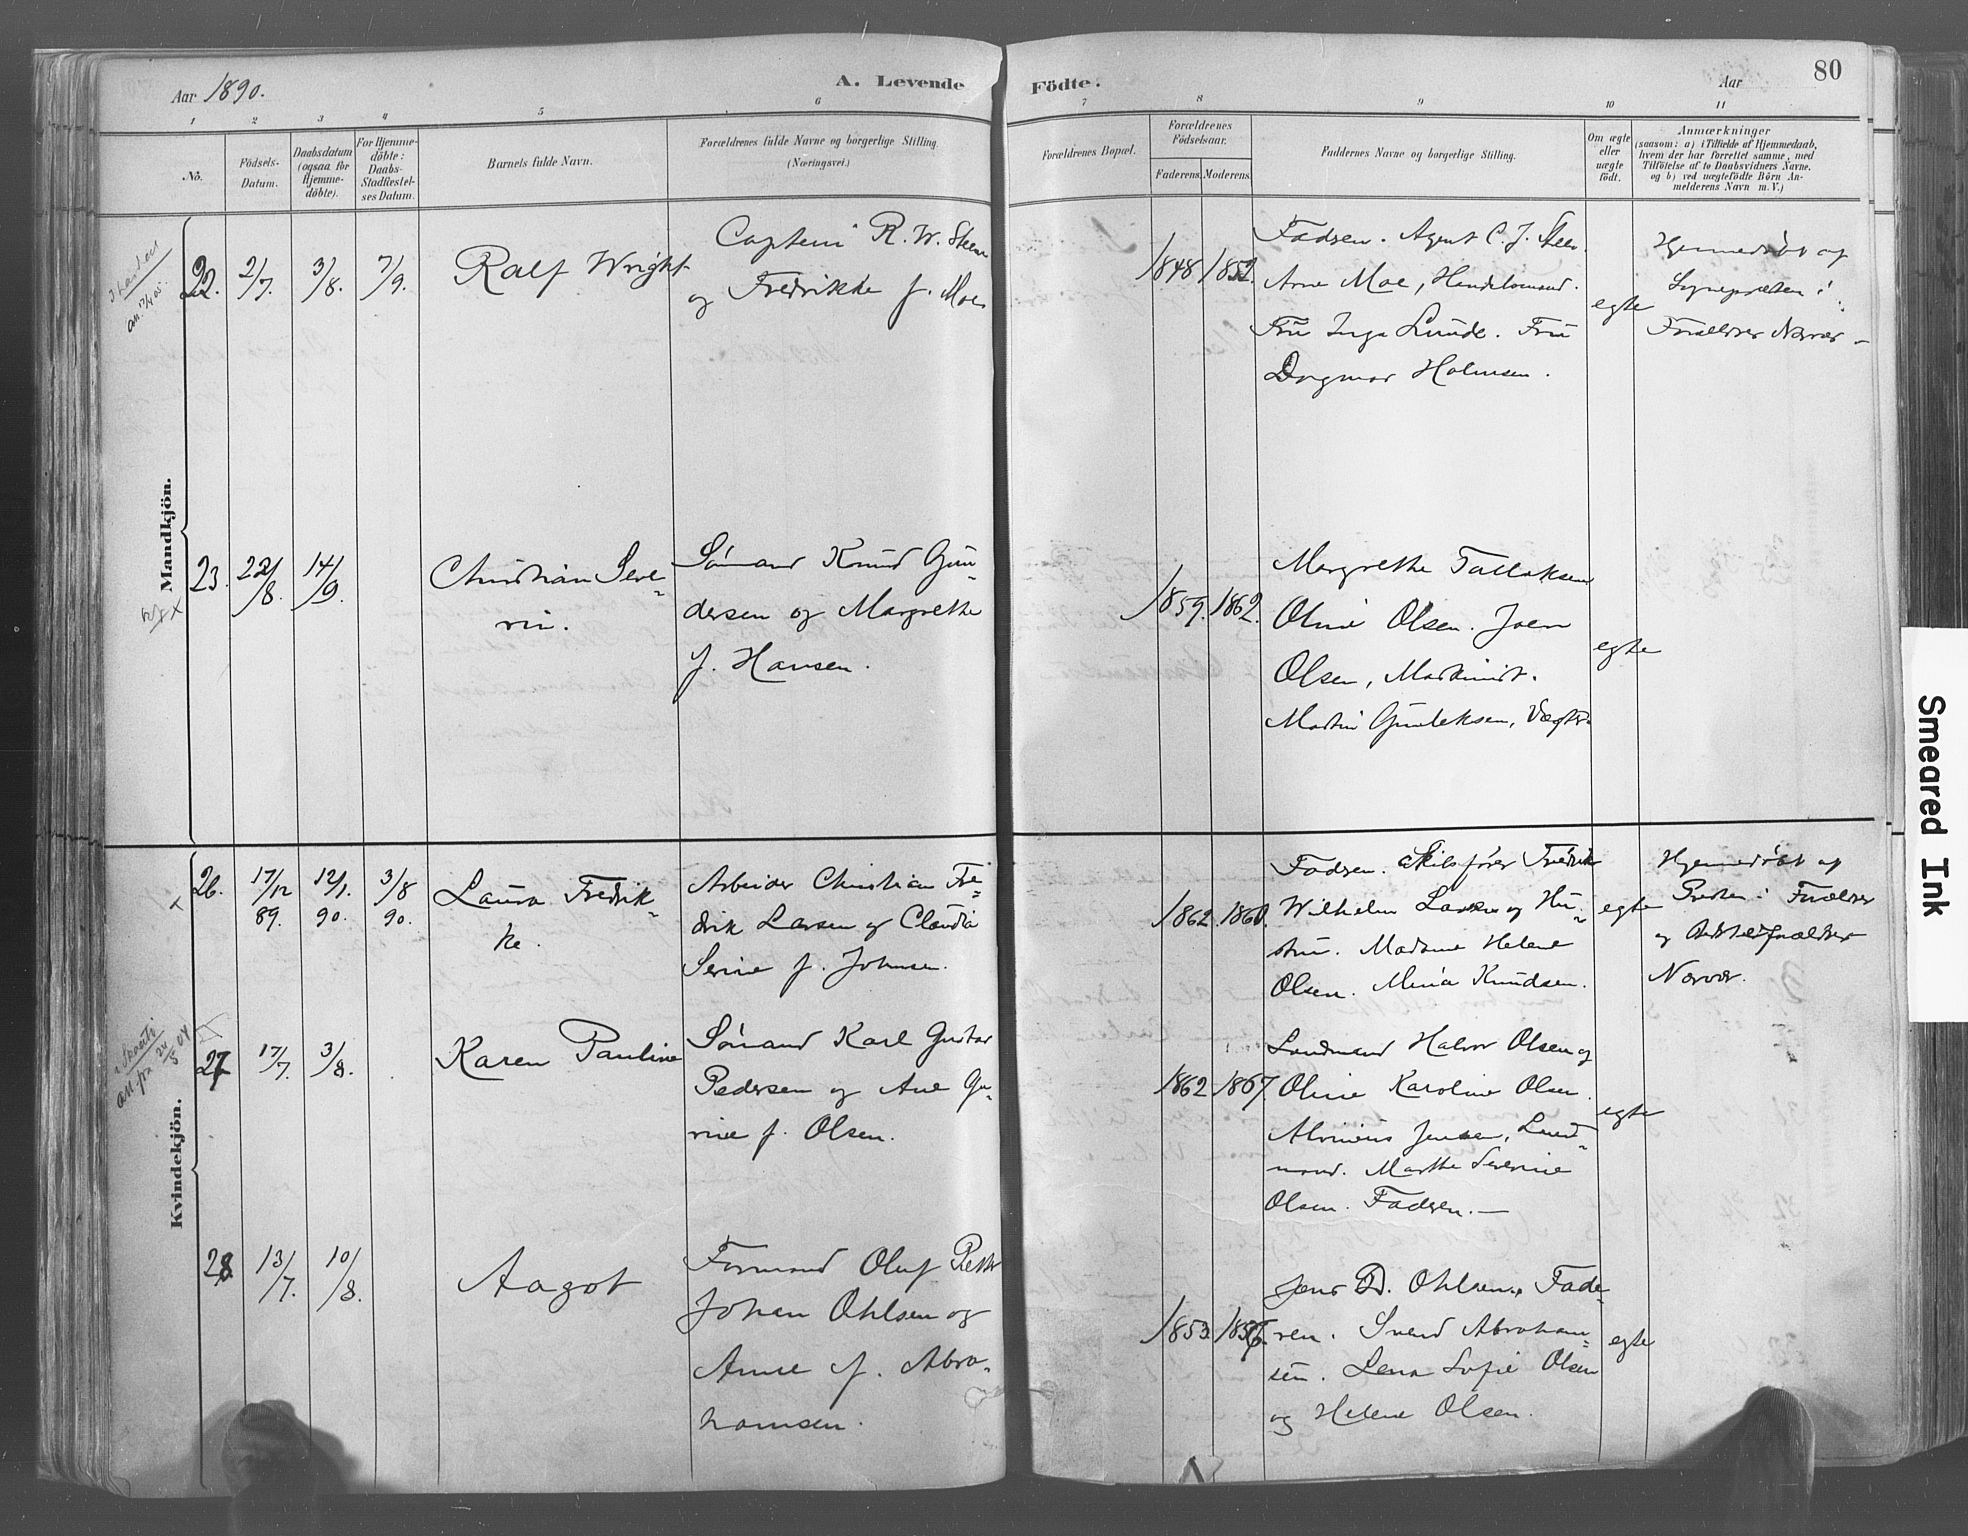 Aar 1890.
A. Levende Födte.
Aar
80
1 2 3 4 5 6 7 8 9 10 11
No.
Födsels-Datum.
Daabsdatum (ogsaa for Hjemme-döbte).
For Hjemme-döbte: Daabs-Stadfæstel-ses Datum.
Barnets fulde Navn.
Forældrenes fulde Navne og borgerlige Stilling.
(Næringsvei.)
Forældrenes Bopæl.
Forældrenes Födselsaar.
Faderens. Moderens.
Faddernes Navne og borgerlige Stilling.
Om ægte eller uægte födt.
Anmærkninger
(saasom: a) i Tilfælde af Hjemmedaab,
hvem der har forrettet samme, med
Tilföielse af to Daabsvidners Navne,
og b) ved uægtefödte Börn An-
melderens Navn m. V.)
Mandkjön.
22. 2/7. 3/8. 7/9.
Ralf Wright
Captein R. W. Steen
og Fredrikke f. Moe
1848 1852.
Faderen. Agent C. J. Steen
Arne Moe, Handelsmand.
Fru Inga Lunde. Fru
Dagmar Holmsen.
egte
Hjemmedøbt af
Sognepræsten i
Forældres Nærvær
23. 22/8. 14/9.
Christian Seve-
rin.
Sømand Knud Gun-
dersen og Margrethe
f. Hansen.
1859. 1862.
Margrethe Tallaksen
Oline Olsen. Joen
Olsen,
Martin Gunleksen, Vægter
egte
Kvindekjön.
26. 17/12 89. 12/1. 90. 3/8 90.
Laura Fredrik-
ke.
Arbeider Christian Fre-
drik Larsen og Claudia
Serine f. Johnsen.
1862. 1860.
Faderen. Skibsfører Fredrik
Wilhelm Larsen og Hu-
stru. Madame Helene
Olsen. Mina Knudsen.
egte
Hjemmedøbt af
Presten i Forældres
og Bedsteforældres
Nærvær.
27 17/7. 3/8.
Karen Pauline
Sømand Karl Gustav
Pedersen og Ane Gu-
rine f. Olsen.
1862 1867
Landmand Halvor Olsen og
Oline Karoline Olsen.
Jensen, Land-
mand. Marthe Severine
Olsen. Faderen. —
egte
28 13/7. 10/8.
Aagot
Formand Oluf Petter
Johan Ohlsen og
Anne f. Abra-
hamsen.
1853. 1856.
Jens D. Ohlsen, Fade-
ren. Svend Abraham-
sen. Lena Sofie Olsen
og Helene Olsen.
egte
Smeared Ink